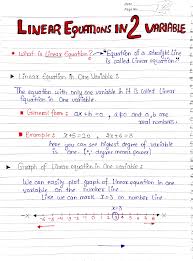 Date
Page No.
LINEAR EQUATIONS IN 2 VARIABLE
What is Linear Equation? → "Equation of a straight line
is called Linear equation"
Linear Equation in One Variable :
The equation with only one variable in it is called linear
Equation in One variable.
General form : ax+b=0 , a≠0 and a,b are
real numbers.
Example : x+5=0 , 2x+6=3
here you can see highest degree of variable
is "one. [∵ degree means power]
Graph of Linear equation in one variable :
We can easily plot graph of linear equation in one
variable on the number line
Like we can mark x=3 on number line
x=3
-6 -5 -4 -3 -2 -1 0 1 2 3 4 5 6